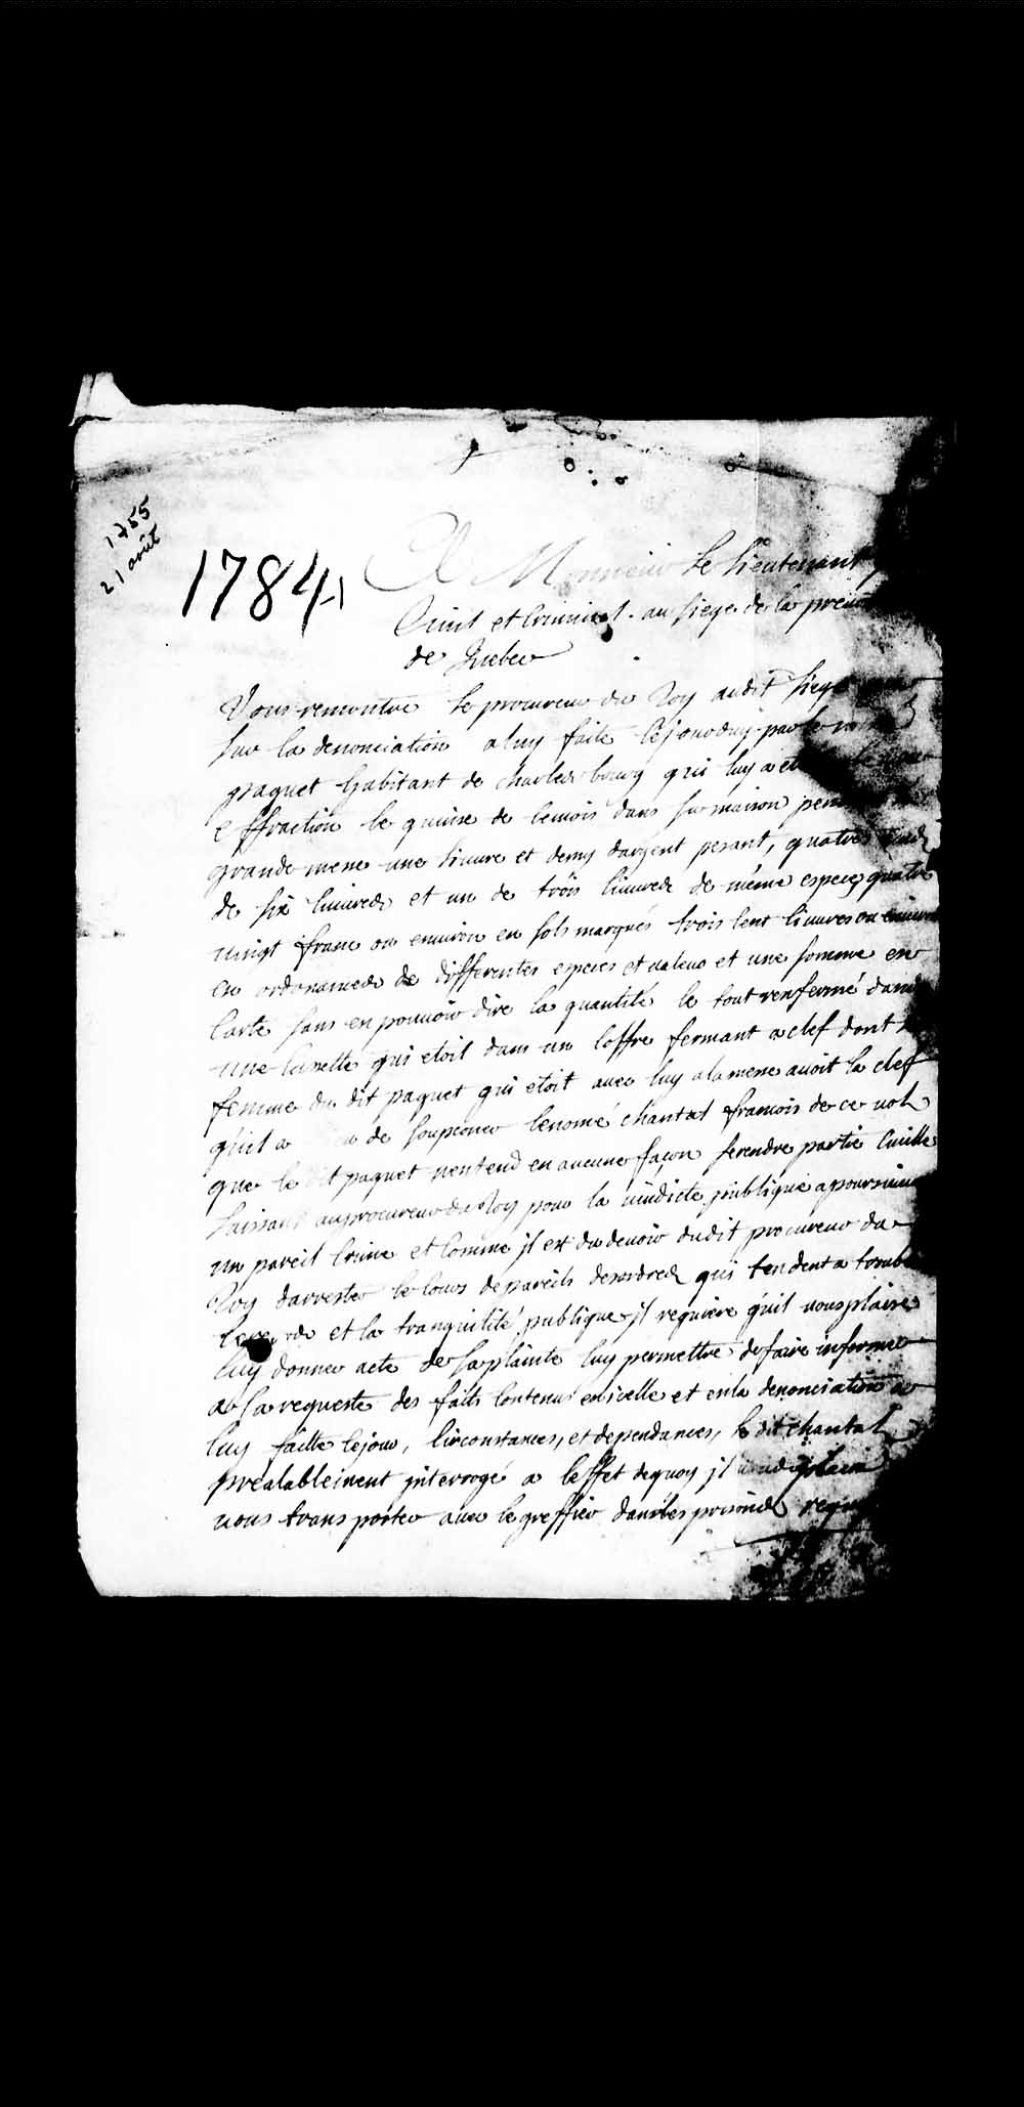 1755
21 août
1784
A Monsieur le lieutenant
Civil et Criminel au siege de la
de Quebec
Vous remontre le procureur du Roy audit siege
sur la denonciation a luy faite cejourduy par le
paquet habitant de charlesbourg qui luy a
effraction le quinse de cemois dans sa maison
grande mese une livre et demy dargent pesant, quatre
de six livres et un de trois livres de même espece quatre
vingt franc ou environ en sols marqués trois cent livres ou environ
en ordonances de differentes especes et valeur et une somme en
Carte sans en pouvoir dire la quantité le tout renfermé dans
une cassette qui etoit dans un coffre fermant a clef dont
femme du dit paquet qui etoit avec luy alamese avoit la clef
quil a de soupconer lenomé chantal francois de ce vol
que le dit paquet nentend en aucune façon serendre partie Civille
Laissant auprocureur du Roy pour la vindicte publique apoursuivre
un pareil Crime et Comme jl est du devoir dudit procureur du
Roy darrester le cours depareils desordres qui tendent a
et la tranquilité publique jl requiere quil vous plaise
luy donner acte de sa plainte luy permettre defaire informer
a sa requeste des faits contenus enicelle et enla denonciation a
luy faitte cejour, circonstances, et dependances, le dit chantal
prealablement jnterrogé a leffet dequoy jl
vous transporter avec le greffier dansles prisons